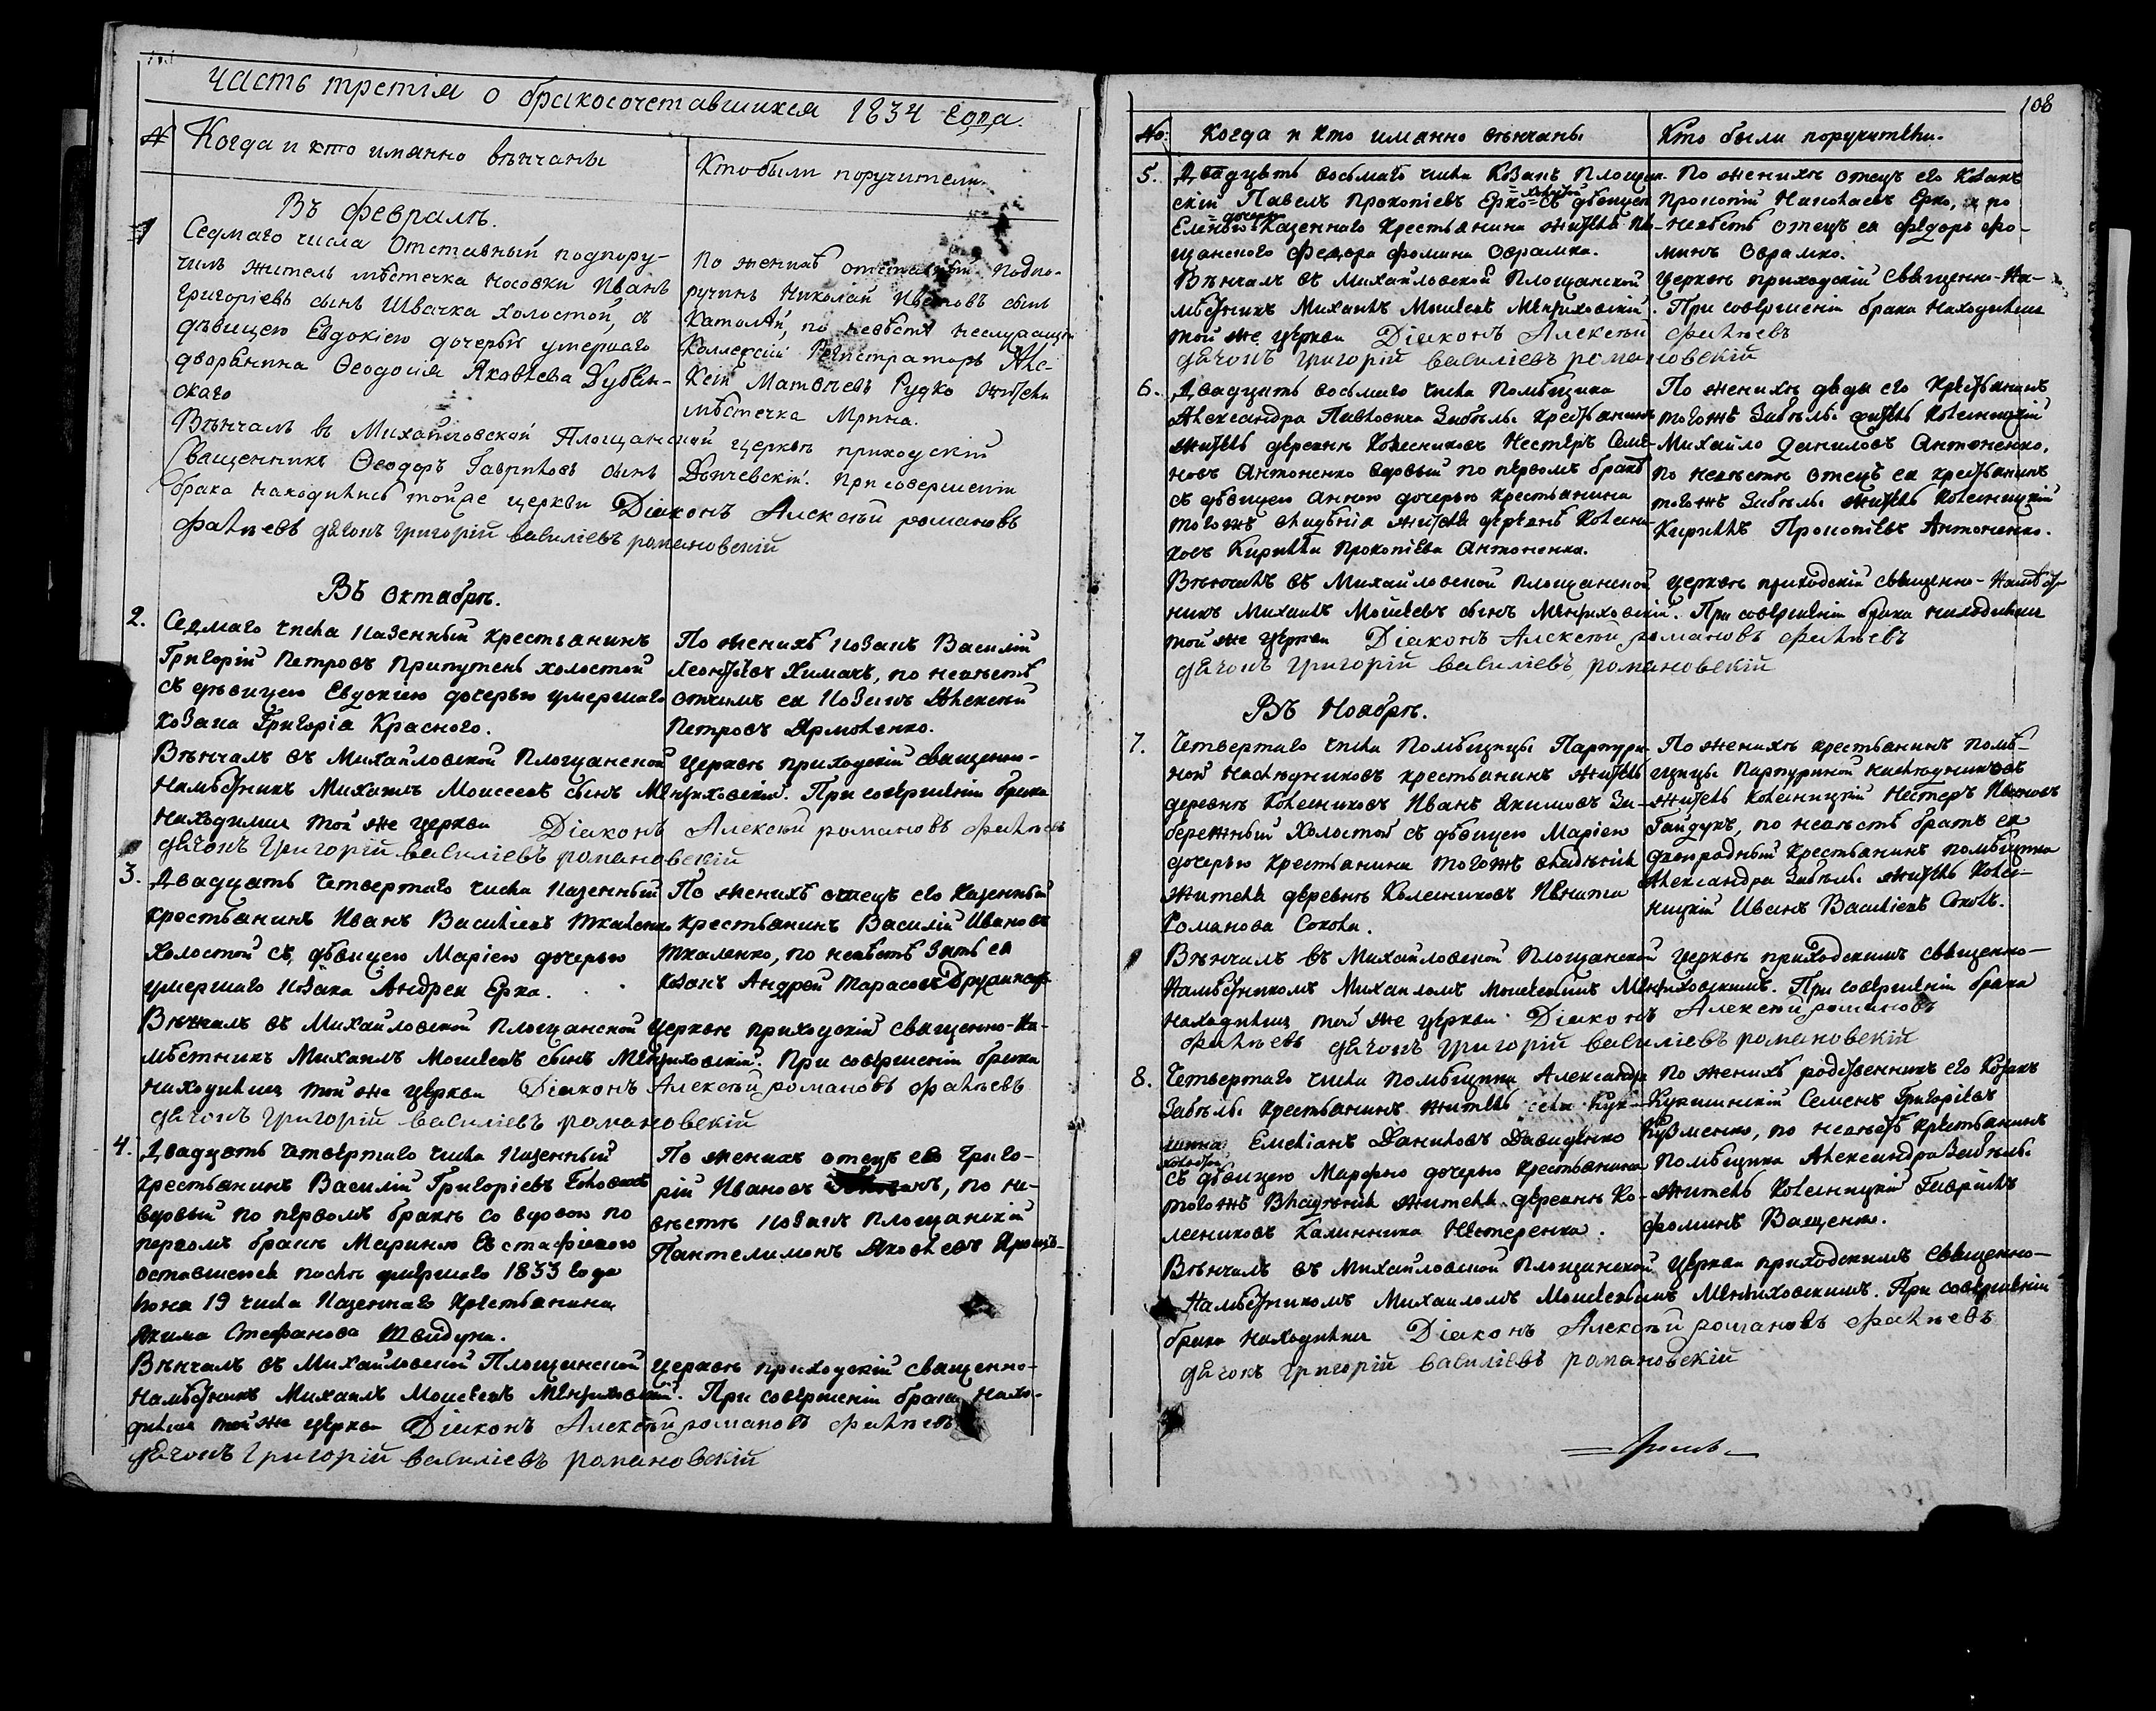 Часть третія о бракосочетавшихся 1834 Года.
№ Когда и кто имянно вѣнчаны
Кто были поручители.
Въ Февралѣ.
1
Седмаго числа Отставный подпору-
чикъ житель мѣстечка Носовки Иванъ
Григоріевъ сынъ Швачка холостой, съ
дѣвицею Евдокіею дочерью умершаго
дворянина Ѳеодосія Яковлева Дубвен-
скаго
По женихѣ отставный подпо-
ручикъ Николай Ивановъ сынъ
по невѣстѣ
Коллежскій Регистраторъ Але-
ксѣй Матвѣевъ Рудко житель
мѣстечка Мрина.
Вѣнчалъ въ Михайловской Площанской церквѣ приходскій
Священникъ Ѳеодоръ Гавриловъ сынъ При совершеніи
брака находились тойже церкви Діаконъ Алексѣй романовъ
Фалѣевъ дячокъ григорій василіевъ романовскій
Въ Октябрѣ.
2.
Седмаго числа казенный крестьянинъ
Григорій Петровъ Припутень холостой
съ дѣвицею Евдокіею дочерью умершаго
козака Григорія Красного.
По женихѣ козакъ Василій
Леонтьевъ Химачъ, по невѣстѣ
отчимъ ея козакъ Алексѣй
Петровъ Ярмоленко.
Вѣнчалъ въ Михайловской Площанской церквѣ приходскій священно-
намѣстникъ Михаилъ Моисеевъ сынъ Менжиховскій. При совершеніи брака
находились той же церкви Діаконъ Алексѣй романовъ Фалѣевъ
дячокъ григорій василіевъ романовскій
3.
Двадцать четвертаго числа казенный
крестьянинъ Иванъ Василіевъ Ткаленко
холостой съ дѣвицею Маріею дочерью
умершаго козака Андрея Ерка.
По женихѣ отецъ его казенный
крестьянинъ Василій Ивановъ
Ткаленко, по невѣстѣ зять ея
козакъ Андрей Тарасовъ
Вѣнчалъ въ Михайловской Площанской церквѣ приходскій священно-на-
мѣстникъ Михаилъ Моисеевъ сынъ Менжиховскій. При совершеніи брака
находились той же церкви Діаконъ Алексѣй романовъ Фалѣевъ
дячокъ григорій василіевъ романовскій
4.
Двадцать четвертаго числа казенный
крестьянинъ Василій Григоріевъ
вдовый по первомъ бракѣ со вдовою по
первомъ бракѣ Мариною Евстафіевою
оставшеюся послѣ умершаго 1833 года
19 числа казеннаго крестьянина
Якима Стефанова Швидуна.
По женихѣ отецъ его Григо-
рій Ивановъ по не-
вѣстѣ козакъ Площанскій
Пантелимонъ Яковлевъ
Вѣнчалъ въ Михайловской Площанской церквѣ приходскій священно-
намѣстникъ Михаилъ Моисеевъ Менжиховскій. При совершеніи брака нахо-
дились той же церкви Діаконъ Алексѣй романовъ Фалѣевъ
дячокъ григорій василіевъ романовскій
108
№: Когда и кто имянно вѣнчаны
Кто были поручители.
5.
Двадцать восьмаго числа Козакъ Площан-
скій Павелъ Прокопіевъ Ерко холостой съ дѣвицею
Еленою дочерью Казеннаго крестьянина жителя Пло-
щанского Федора Фомина Оврамка.
По женихѣ отецъ его козакъ
Прокопій Николаевъ Ерко, и по
невѣстѣ отецъ ея Федоръ Фо-
минъ Оврамко.
Вѣнчалъ въ Михайловской Площанской церквѣ приходскій священно-на-
мѣстникъ Михаилъ Моисеевъ Менжиховскій. При совершеніи брака находились
той же церкви Діаконъ Алексѣй Фалѣевъ
дячокъ григорій василіевъ романовскій
6.
Двадцать восьмаго числа Помѣщика
Александра Павловича Забѣлы крестьянинъ
житель деревнѣ Колесниковъ Нестеръ Семе-
новъ Антоненко вдовый по первомъ бракѣ
съ дѣвицею Анною дочерью крестьянина
тогожъ владѣнія жителя деревнѣ Колесни-
ковъ Кирилла Прокопіева Антоненка.
По женихѣ дядя его крестьянинъ
тогожъ Забѣлы житель Колесницкій
Михайло Даниловъ Антоненко,
по невѣстѣ отецъ ея крестьянинъ
тогожъ Забѣлы житель Колесницкій
Кириллъ Прокопіевъ Антоненко.
Вѣнчалъ въ Михайловской Площанской церквѣ приходскій священно-намѣст-
никъ Михаилъ Моисеевъ сынъ Менжиховскій. При совершеніи брака находились
той же церкви Діаконъ Алексѣй романовъ Фалѣевъ
дячокъ григорій василіевъ романовскій
Въ Ноябрѣ.
7.
Четвертаго числа Помѣщицы Парпури-
ной наслѣдниковъ крестьянинъ житель
деревнѣ Колесниковъ Иванъ Якимовъ За-
бережный холостой съ дѣвицею Маріею
дочерью крестьянина тогожъ владѣнія
жителя деревнѣ Колесниковъ Игната
Романова Сокола.
По женихѣ крестьянинъ помѣ-
щицы Парпуриной наслѣдниковъ
житель Колесницкій Нестеръ Ивановъ
Гайдукъ, по невѣстѣ братъ ея
двоюродный крестьянинъ помѣщика
Александра Забѣлы житель Колес-
ницкій Иванъ Василіевъ Соколъ.
Вѣнчалъ въ Михайловской Площанской церквѣ приходскимъ священно-
намѣстникомъ Михаиломъ Моисеевымъ Менжиховскимъ. При совершеніи брака
находились той же церкви Діаконъ Алексѣй романовъ
Фалѣевъ дячокъ григорій василіевъ романовскій
8.
Четвертаго числа помѣщика Александра
Забѣлы крестьянинъ житель села Кук-
шина Емеліанъ Даниловъ Давиденко
холостой съ дѣвицею Марфою дочерью крестьянина
тогожъ владѣнія жителя деревнѣ Ко-
лесниковъ Калинника Нестеренка.
По женихѣ родственникъ его Козакъ
Кукшинскій Семенъ Григоріевъ
Кузменко, по невѣстѣ крестьянинъ
Помѣщика Александра Забѣлы
житель Колесницкій Гаврилъ
Фоминъ Ващенко.
Вѣнчалъ въ Михайловской Площанской церкви приходскимъ священно-
намѣстникомъ Михаиломъ Моисеевымъ Менжиховскимъ. При совершеніи
брака находились Діаконъ Алексѣй романовъ Фалѣевъ
дячокъ григорій василіевъ романовскій